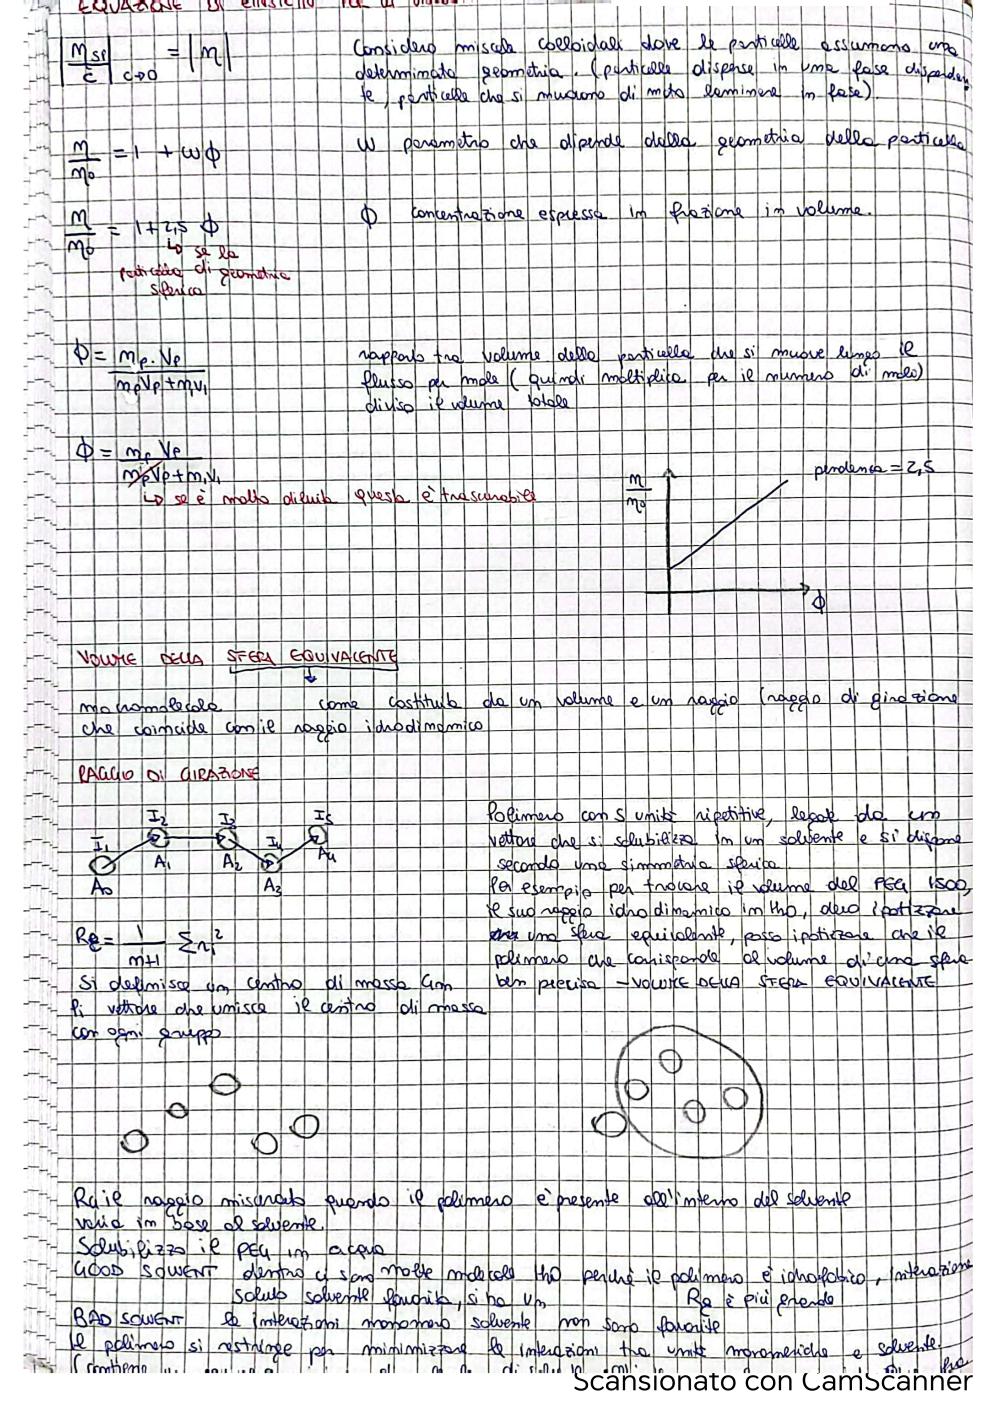 EQUAZIONE DI
|ηsp/c| c→0 = |η|
Considero miscele colloidali dove le particelle assumano una
determinata geometria. (particelle disperse in una fase disperden
te, particelle che si muovono di moto laminare in fase)
η/η0 = 1 + ωϕ
W parametro che dipende dalla geometria della particella
η/η0 = 1+2,5 ϕ
ϕ concentrazione espressa in frazione in volume.
↳ se la
particella di geometria
sferica
ϕ = mp·Vp / mpVp+m1V1
rapporto tra volume della particella che si muove lungo il
flusso per mole (quindi moltiplica per il numero di moli)
diviso il volume totale
ϕ = mp Vp / mpVp+m1V1
↳ se è molto diluita questa è trascurabile
η/η0
pendenza = 2,5
ϕ
VOLUME DELLA SFERA EQUIVALENTE
macromolecola come costituita da un volume e un raggio (raggio di girazione
che coincide con il raggio idrodinamico
RAGGIO DI GIRAZIONE
I1 I2 I3 I4 I5
A0 A1 A2 A3 A4
Polimero con 5 unità ripetitive, legate da un
vettore che si solubilizza in un solvente e si dispone
secondo una simmetria sferica
Per esempio per trovare il volume del PEG 1500,
il suo raggio idrodinamico in H2O, devo ipotizzare
una sfera equivalente, posso ipotizzare che il
polimero che corrisponde al volume di una sfera
ben precisa – VOLUME DELLA SFERA EQUIVALENTE
Rg = 1/m+1 Σri²
Si definisce un centro di massa Gm
ri vettore che unisce il centro di massa
con ogni gruppo
Rg il raggio misurato quando il polimero è presente all'interno del solvente
varia in base al solvente.
Solubilizzo il PEG in acqua
GOOD SOLVENT dentro ci sono molte molecole H2O perché il polimero è idrofobico, interazione
soluto solvente favorita, si ha un Rg è più grande
BAD SOLVENT le interazioni monomero solvente non sono favorite
Il polimero si restringe per minimizzare le interazioni tra unità monomeriche e solvente.
(contiene
Scansionato con CamScanner